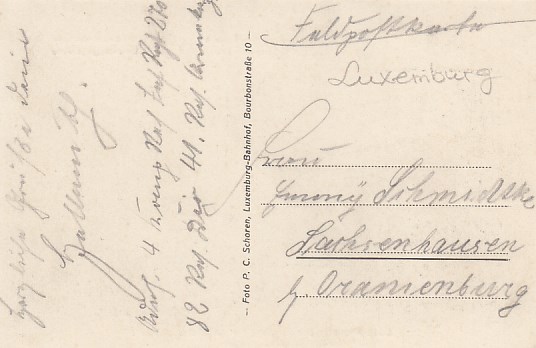 Feldpostkarte
Luxemburg
Frau
Emmy Schmidtke
Sachsenhausen
b/ Oranienburg
— Foto P. C. Schoren, Luxemburg-Bahnhof, Bourbonstraße 10 —
herzliche Grüße Dein
Hellmuth.
4 Komp. Res. Inf. Reg 270
82 Res. Div 41. Res.